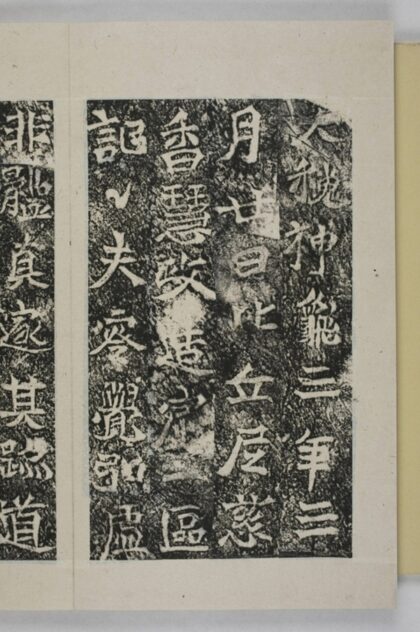 大魏神龜三年三
月廿日比丘尼慈
香慧政造窟一區
記之夫零覺弘虛
非體真邃其跡道